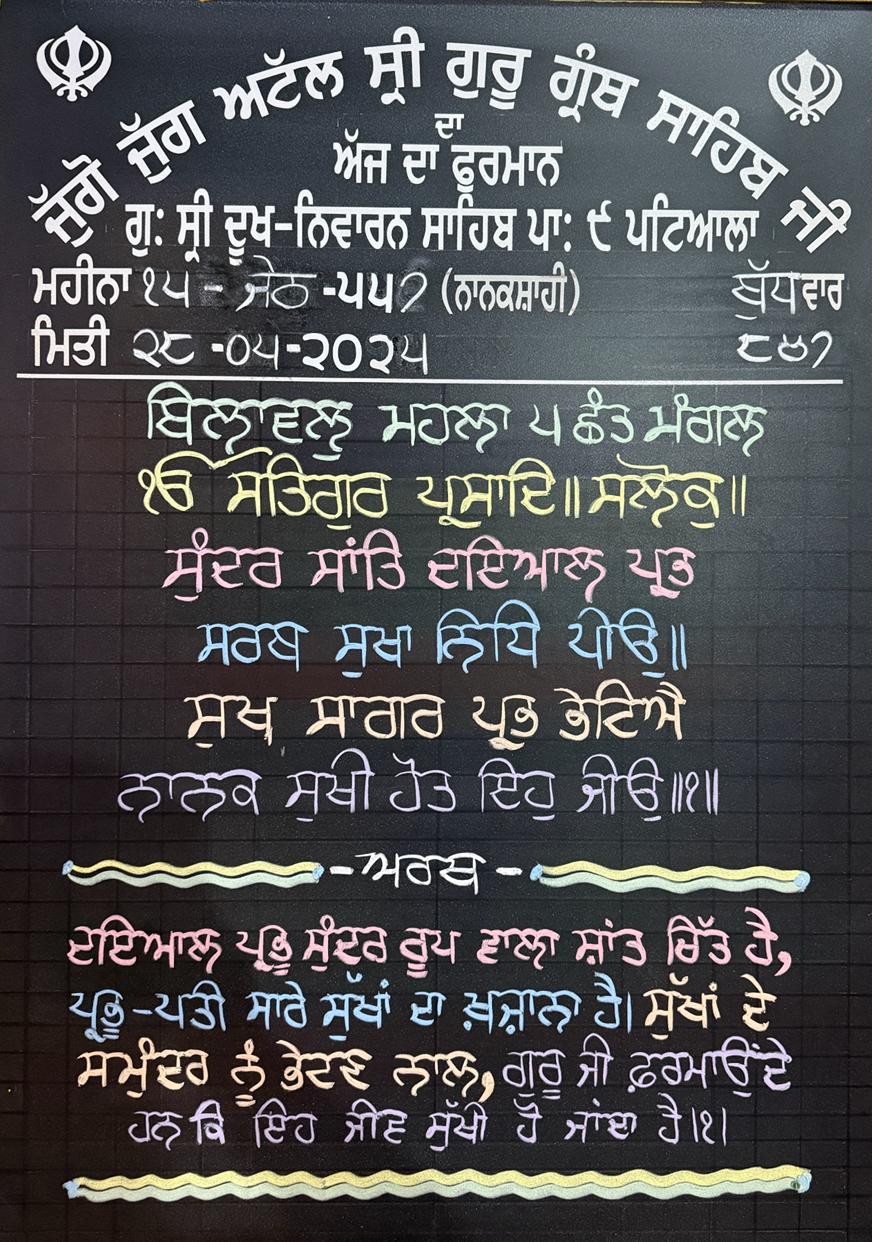 ਜੁੱਗੋ ਜੁੱਗ ਅਟੱਲ ਸ੍ਰੀ ਗੁਰੂ ਗ੍ਰੰਥ ਸਾਹਿਬ ਜੀ
ਦਾ
ਅੱਜ ਦਾ ਫੁਰਮਾਨ
ਗੁ: ਸ੍ਰੀ ਦੂਖ-ਨਿਵਾਰਨ ਸਾਹਿਬ ਪਾ: ੯ ਪਟਿਆਲਾ
ਮਹੀਨਾ ੧੫ - ਜੇਠ -੫੫੭ (ਨਾਨਕਸ਼ਾਹੀ) ਬੁੱਧਵਾਰ
ਮਿਤੀ ੨੮ -੦੫-੨੦੨੫ ੮੪੭
ਬਿਲਾਵਲੁ ਮਹਲਾ ੫ ਛੰਤ ਮੰਗਲ
ੴ ਸਤਿਗੁਰ ਪ੍ਰਸਾਦਿ॥ ਸਲੋਕੁ॥
ਸੁੰਦਰ ਸਾਂਤਿ ਦਇਆਲ ਪ੍ਰਭ
ਸਰਬ ਸੁਖਾ ਨਿਧਿ ਪੀਉ॥
ਸੁਖ ਸਾਗਰ ਪ੍ਰਭ ਭੇਟਿਐ
ਨਾਨਕ ਸੁਖੀ ਹੋਤ ਇਹੁ ਜੀਉ॥੧॥
- ਅਰਥ -
ਦਇਆਲ ਪ੍ਰਭੂ ਸੁੰਦਰ ਰੂਪ ਵਾਲਾ ਸ਼ਾਂਤ ਚਿੱਤ ਹੈ,
ਪ੍ਰਭੂ-ਪਤੀ ਸਾਰੇ ਸੁੱਖਾਂ ਦਾ ਖ਼ਜ਼ਾਨਾ ਹੈ। ਸੁੱਖਾਂ ਦੇ
ਸਮੁੰਦਰ ਨੂੰ ਭੇਟਣ ਨਾਲ, ਗੁਰੂ ਜੀ ਫ਼ਰਮਾਉਂਦੇ
ਹਨ ਕਿ ਇਹ ਜੀਵ ਸੁੱਖੀ ਹੋ ਜਾਂਦਾ ਹੈ।੧।